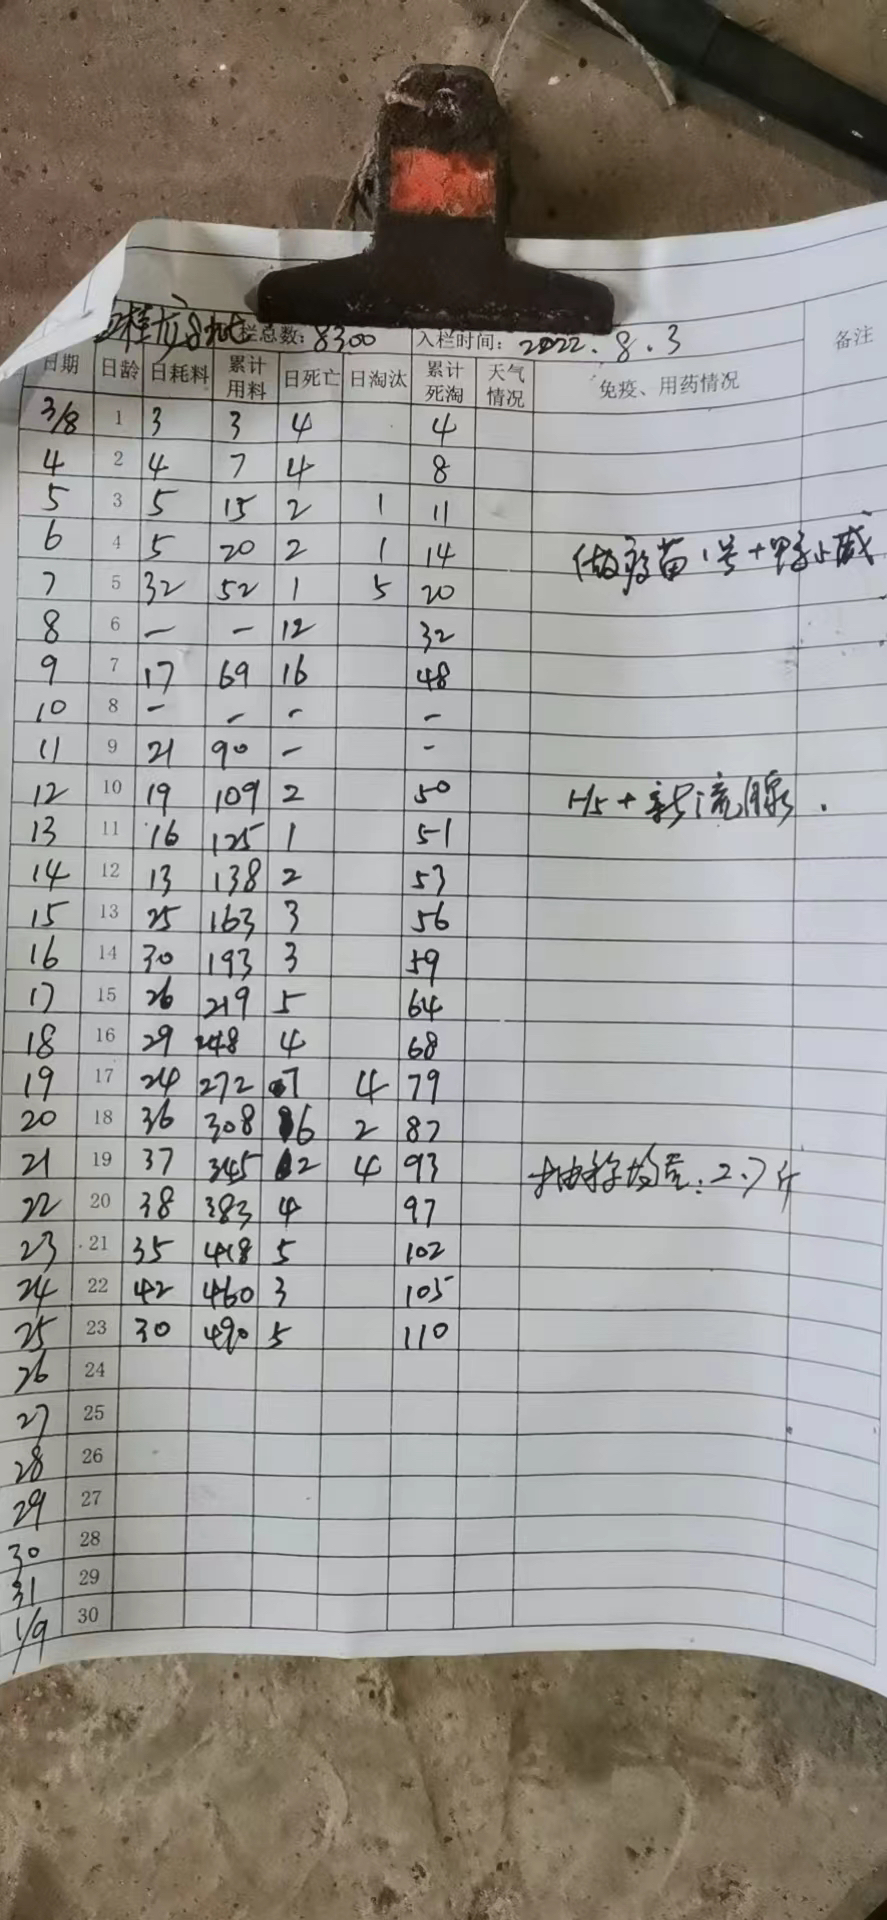 栏总数: 8300 入栏时间: 2022.8.3 备注
日期 日龄 日耗料 累计用料 日死亡 日淘汰 累计死淘 天气情况 免疫、用药情况
3/8 1 3 3 4 4
4 2 4 7 4 8
5 3 5 15 2 1 11
6 4 5 20 2 1 14 做疫苗1号+鸭小减
7 5 32 52 1 5 20
8 6 — — 12 32
9 7 17 69 16 48
10 8 - - - -
11 9 21 90 - -
12 10 19 109 2 50 H5+新流腺.
13 11 16 125 1 51
14 12 13 138 2 53
15 13 25 163 3 56
16 14 30 193 3 59
17 15 26 219 5 64
18 16 29 248 4 68
19 17 24 272 7 4 79
20 18 36 308 6 2 87
21 19 37 345 2 4 93 抽称均重:2.7斤
22 20 38 383 4 97
23 21 35 418 5 102
24 22 42 460 3 105
25 23 30 490 5 110
26 24
27 25
28 26
29 27
30 28
31 29
1/9 30